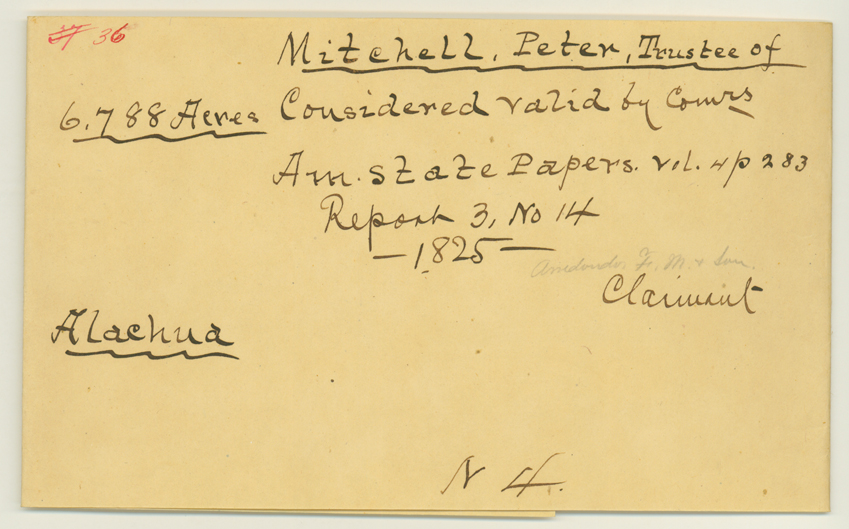 37 36
Mitchell, Peter, Trustee of
6.788 Acres Considered valid by Comrs
Am. State Papers. Vol. 4 p 283
Report 3, No 14
—1825—
Arredondo, F. M. & Son.
Claimant
Alachua
N 4.